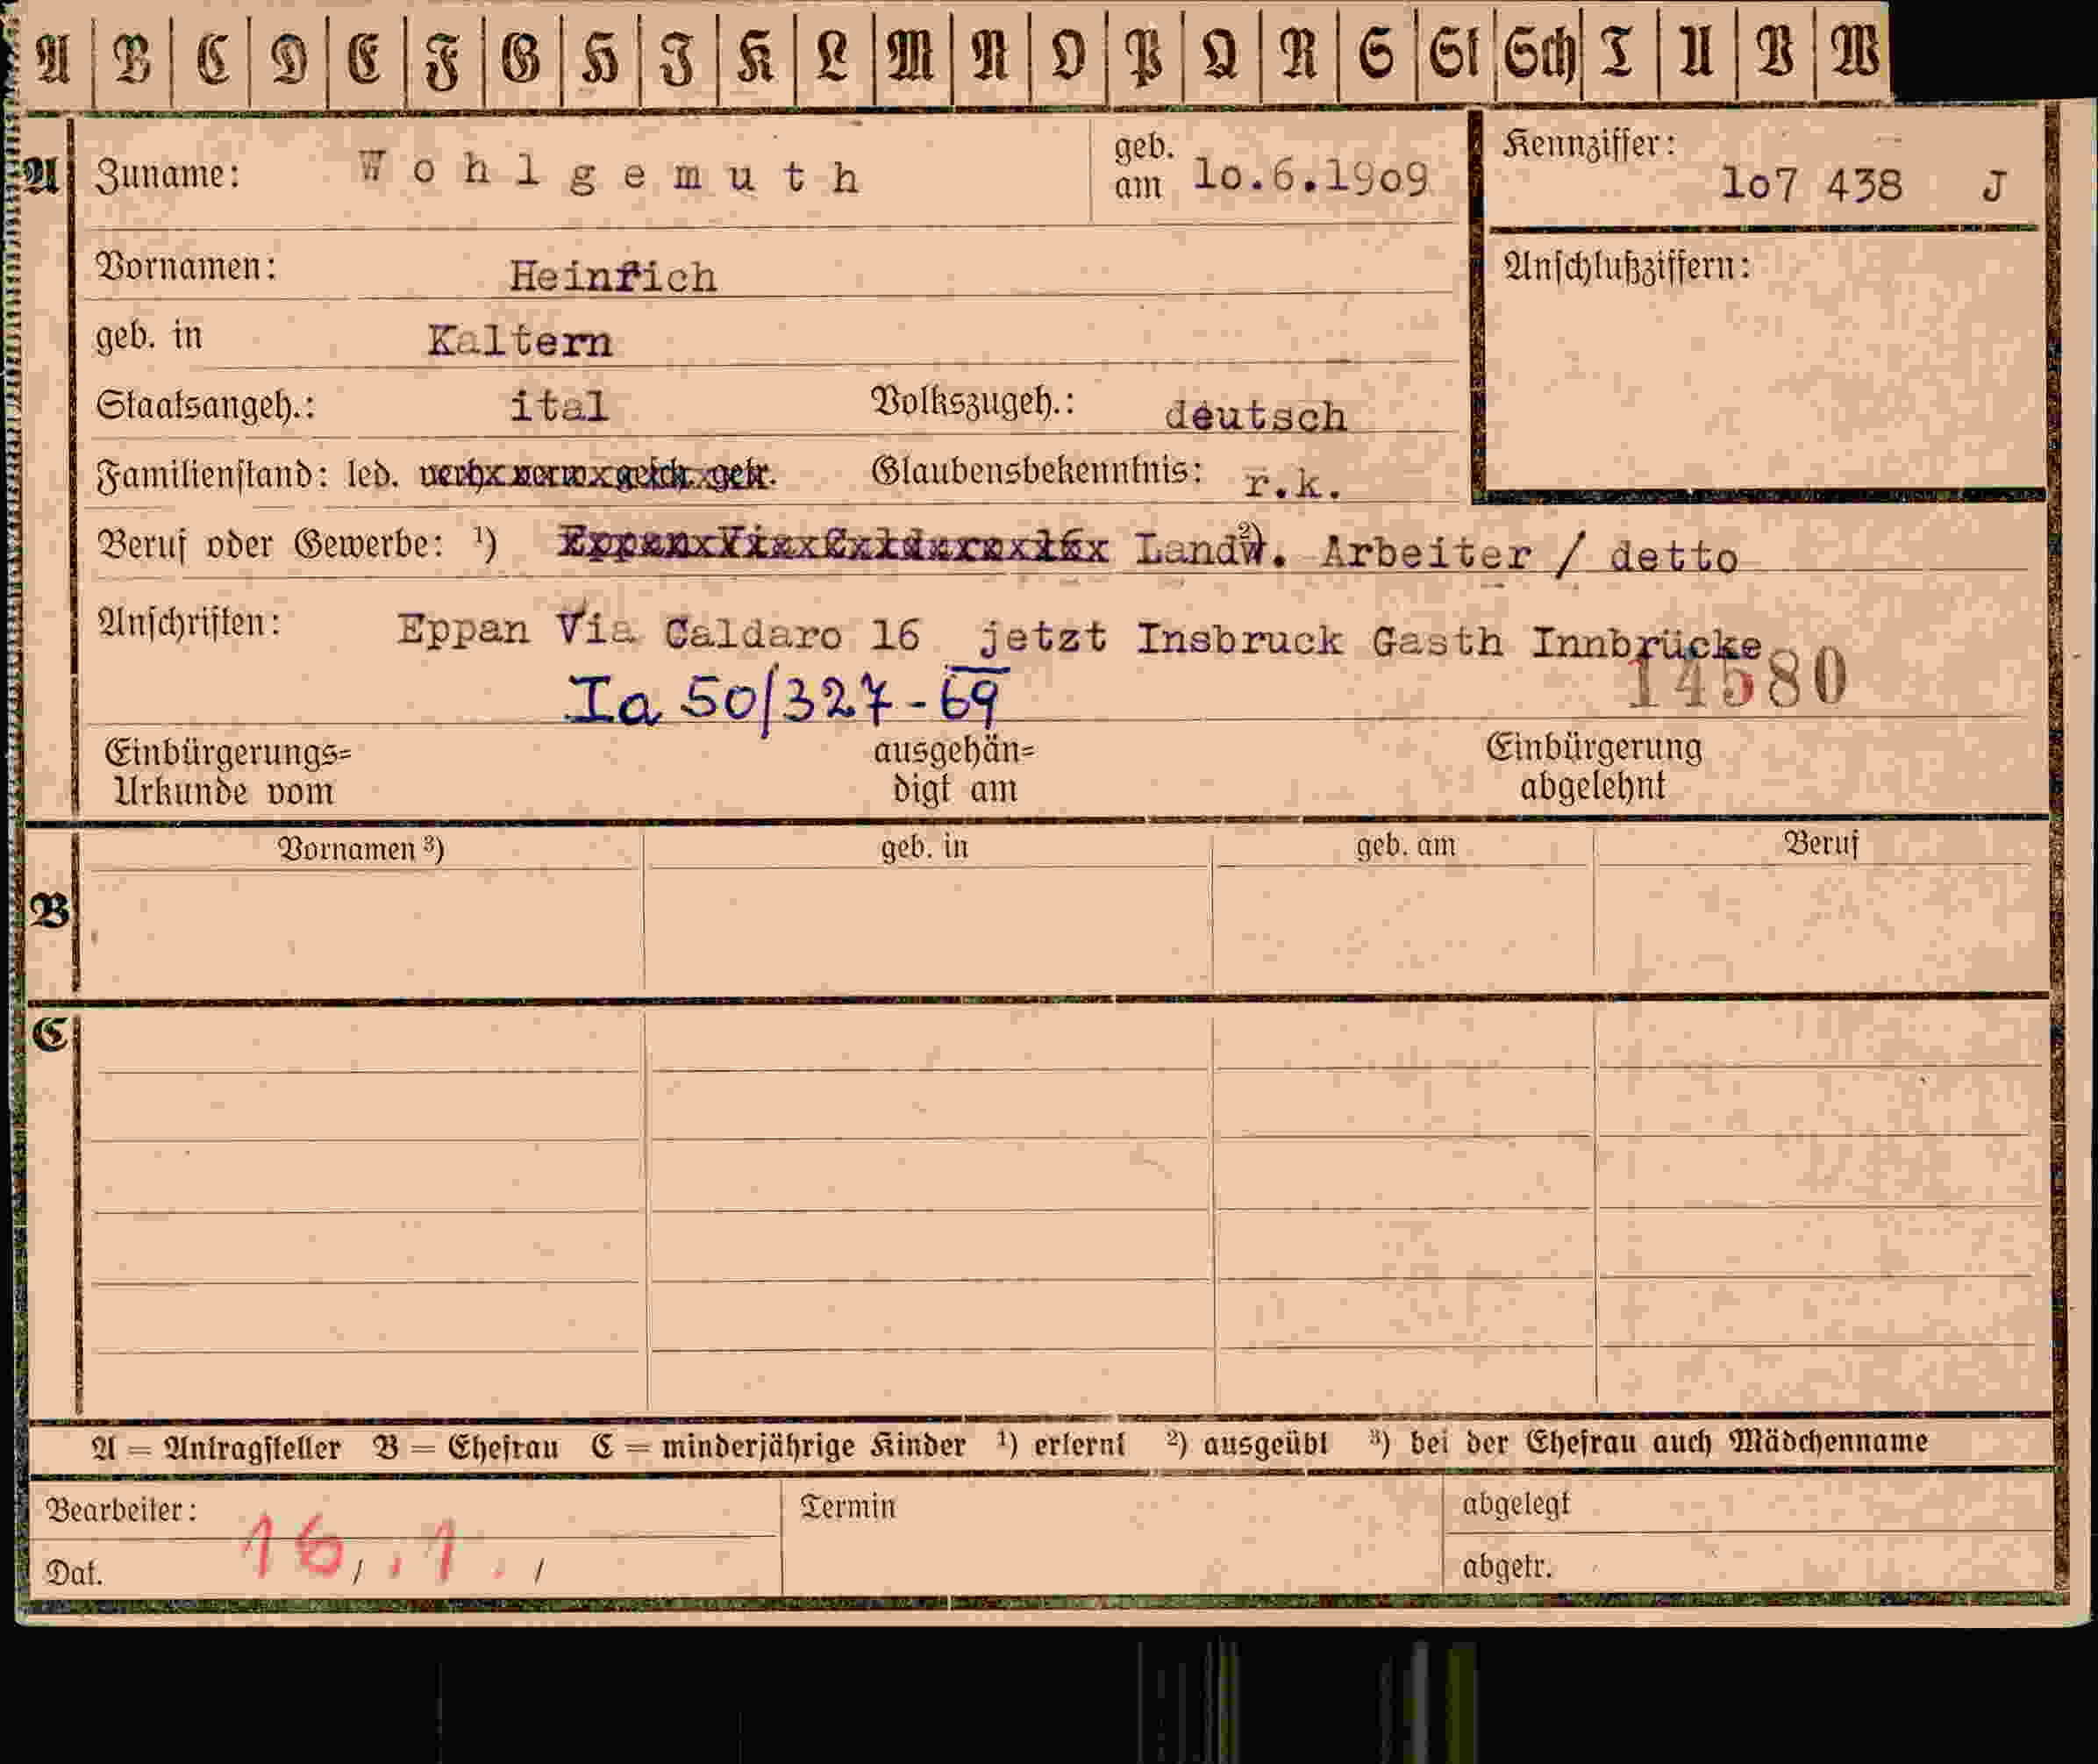 A B C D E F G H I K L M N O P Q R S St Sch T U V W
A Zuname: Wohlgemuth geb. am 10.6.1909 Kennziffer: 107 438 J
Vornamen: Heinrich Anschlußziffern:
geb. in Kaltern
Staatsangeh.: ital Volkszugeh.: deutsch
Familienstand: led. verh. verw. gesch. getr. Glaubensbekenntnis: r.k.
Beruf oder Gewerbe: ¹) ²) Landw. Arbeiter / detto
Anschriften: Eppan Via Caldaro 16 jetzt Insbruck Gasth Innbrücke
Ia 50/327-69 14580
Einbürgerungs= ausgehän= Einbürgerung
Urkunde vom digt am abgelehnt
Vornamen ³) geb. in geb. am Beruf
B
C
A = Antragsteller B = Ehefrau C = minderjährige Kinder ¹) erlernt ²) ausgeübt ³) bei der Ehefrau auch Mädchenname
Bearbeiter: Termin abgelegt
Dat. 16. 1. abgetr.